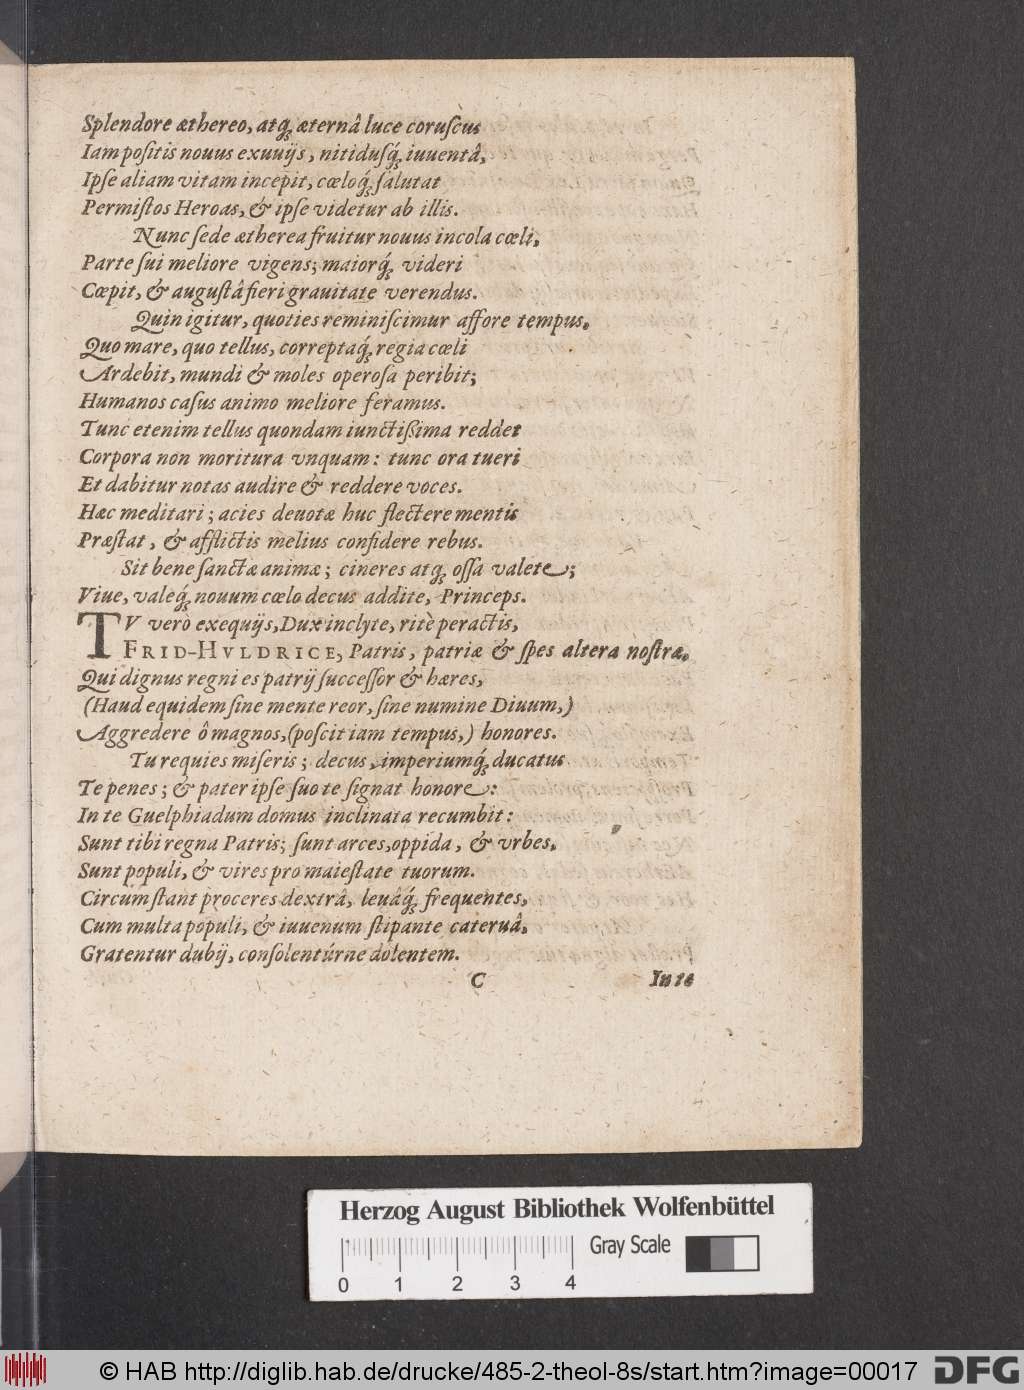 Splendore æthereo, atq́; æternâ luce coruſcus
Iam poſitis nouus exuuijs, nitiduſq́; iuuentâ,
Ipſe aliam vitam incepit, cœloq́; ſalutat
Permiſtos Heroas, & ipſe videtur ab illis.
Nunc ſede ætherea fruitur nouus incola cœli,
Parte ſui meliore vigens; maiorq́; videri
Cœpit, & auguſtâ fieri grauitate verendus.
Quin igitur, quoties reminiſcimur affore tempus,
Quo mare, quo tellus, correptaq́; regia cœli
Ardebit, mundi & moles operoſa peribit;
Humanos caſus animo meliore feramus.
Tunc etenim tellus quondam iunctißima reddet
Corpora non moritura vnquam: tunc ora tueri
Et dabitur notas audire & reddere voces.
Hæc meditari; acies deuotæ huc flectere mentis
Præſtat, & afflictis melius confidere rebus.
Sit bene ſanctæ animæ; cineres atq́; oſſa valete;
Viue, valeq́; nouum cœlo decus addite, Princeps.
TV verò exequijs, Dux inclyte, ritè peractis,
FRID-HVLDRICE, Patris, patriæ & ſpes altera noſtræ,
Qui dignus regni es patrij ſucceſſor & hæres,
(Haud equidem ſine mente reor, ſine numine Diuum,)
Aggredere ô magnos, (poſcit iam tempus,) honores.
Tu requies miſeris; decus, imperiumq́; ducatus
Te penes; & pater ipſe ſuo te ſignat honore:
In te Guelphiadum domus inclinata recumbit:
Sunt tibi regna Patris; ſunt arces, oppida, & vrbes,
Sunt populi, & vires pro maieſtate tuorum.
Circumſtant proceres dextrâ, leuâq́; frequentes,
Cum multa populi, & iuuenum ſtipante cateruâ,
Gratentur dubij, conſolentúrne dolentem.
C In te
Herzog August Bibliothek Wolfenbüttel
Gray Scale
0 1 2 3 4
© HAB http://diglib.hab.de/drucke/485-2-theol-8s/start.htm?image=00017 DFG